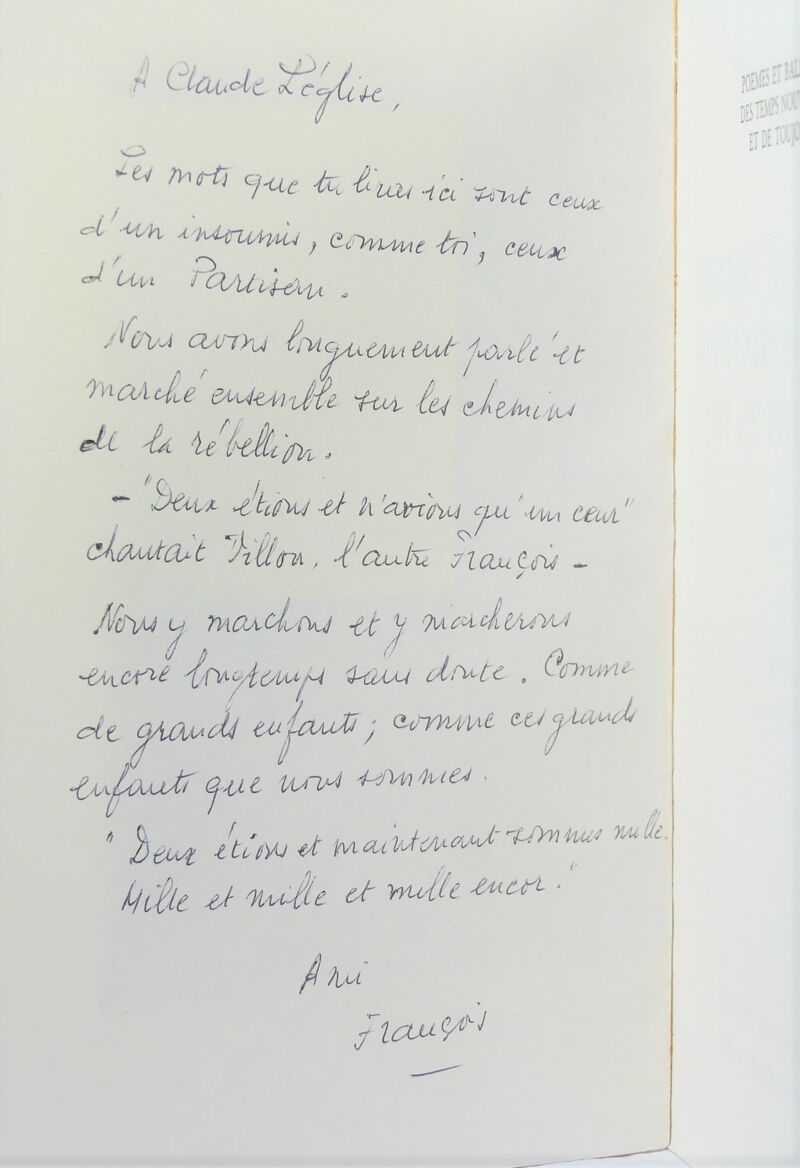 A Claude Léglise,
Les mots que tu liras ici sont ceux
d'un insoumis, comme toi, ceux
d'un Partisan.
Nous avons longuement parlé et
marché ensemble sur les chemins
de la rébellion.
- "Deux étions et n'avions qu'un cœur"
chantait Villon, l'autre François -
Nous y marchons et y marcherons
encore longtemps sans doute. Comme
de grands enfants ; comme ces grands
enfants que nous sommes.
"Deux étions et maintenant sommes mille.
Mille et mille et mille encor."
Ami
François
POEMES ET BAL
DES TEMPS NOU
ET DE TOUJO